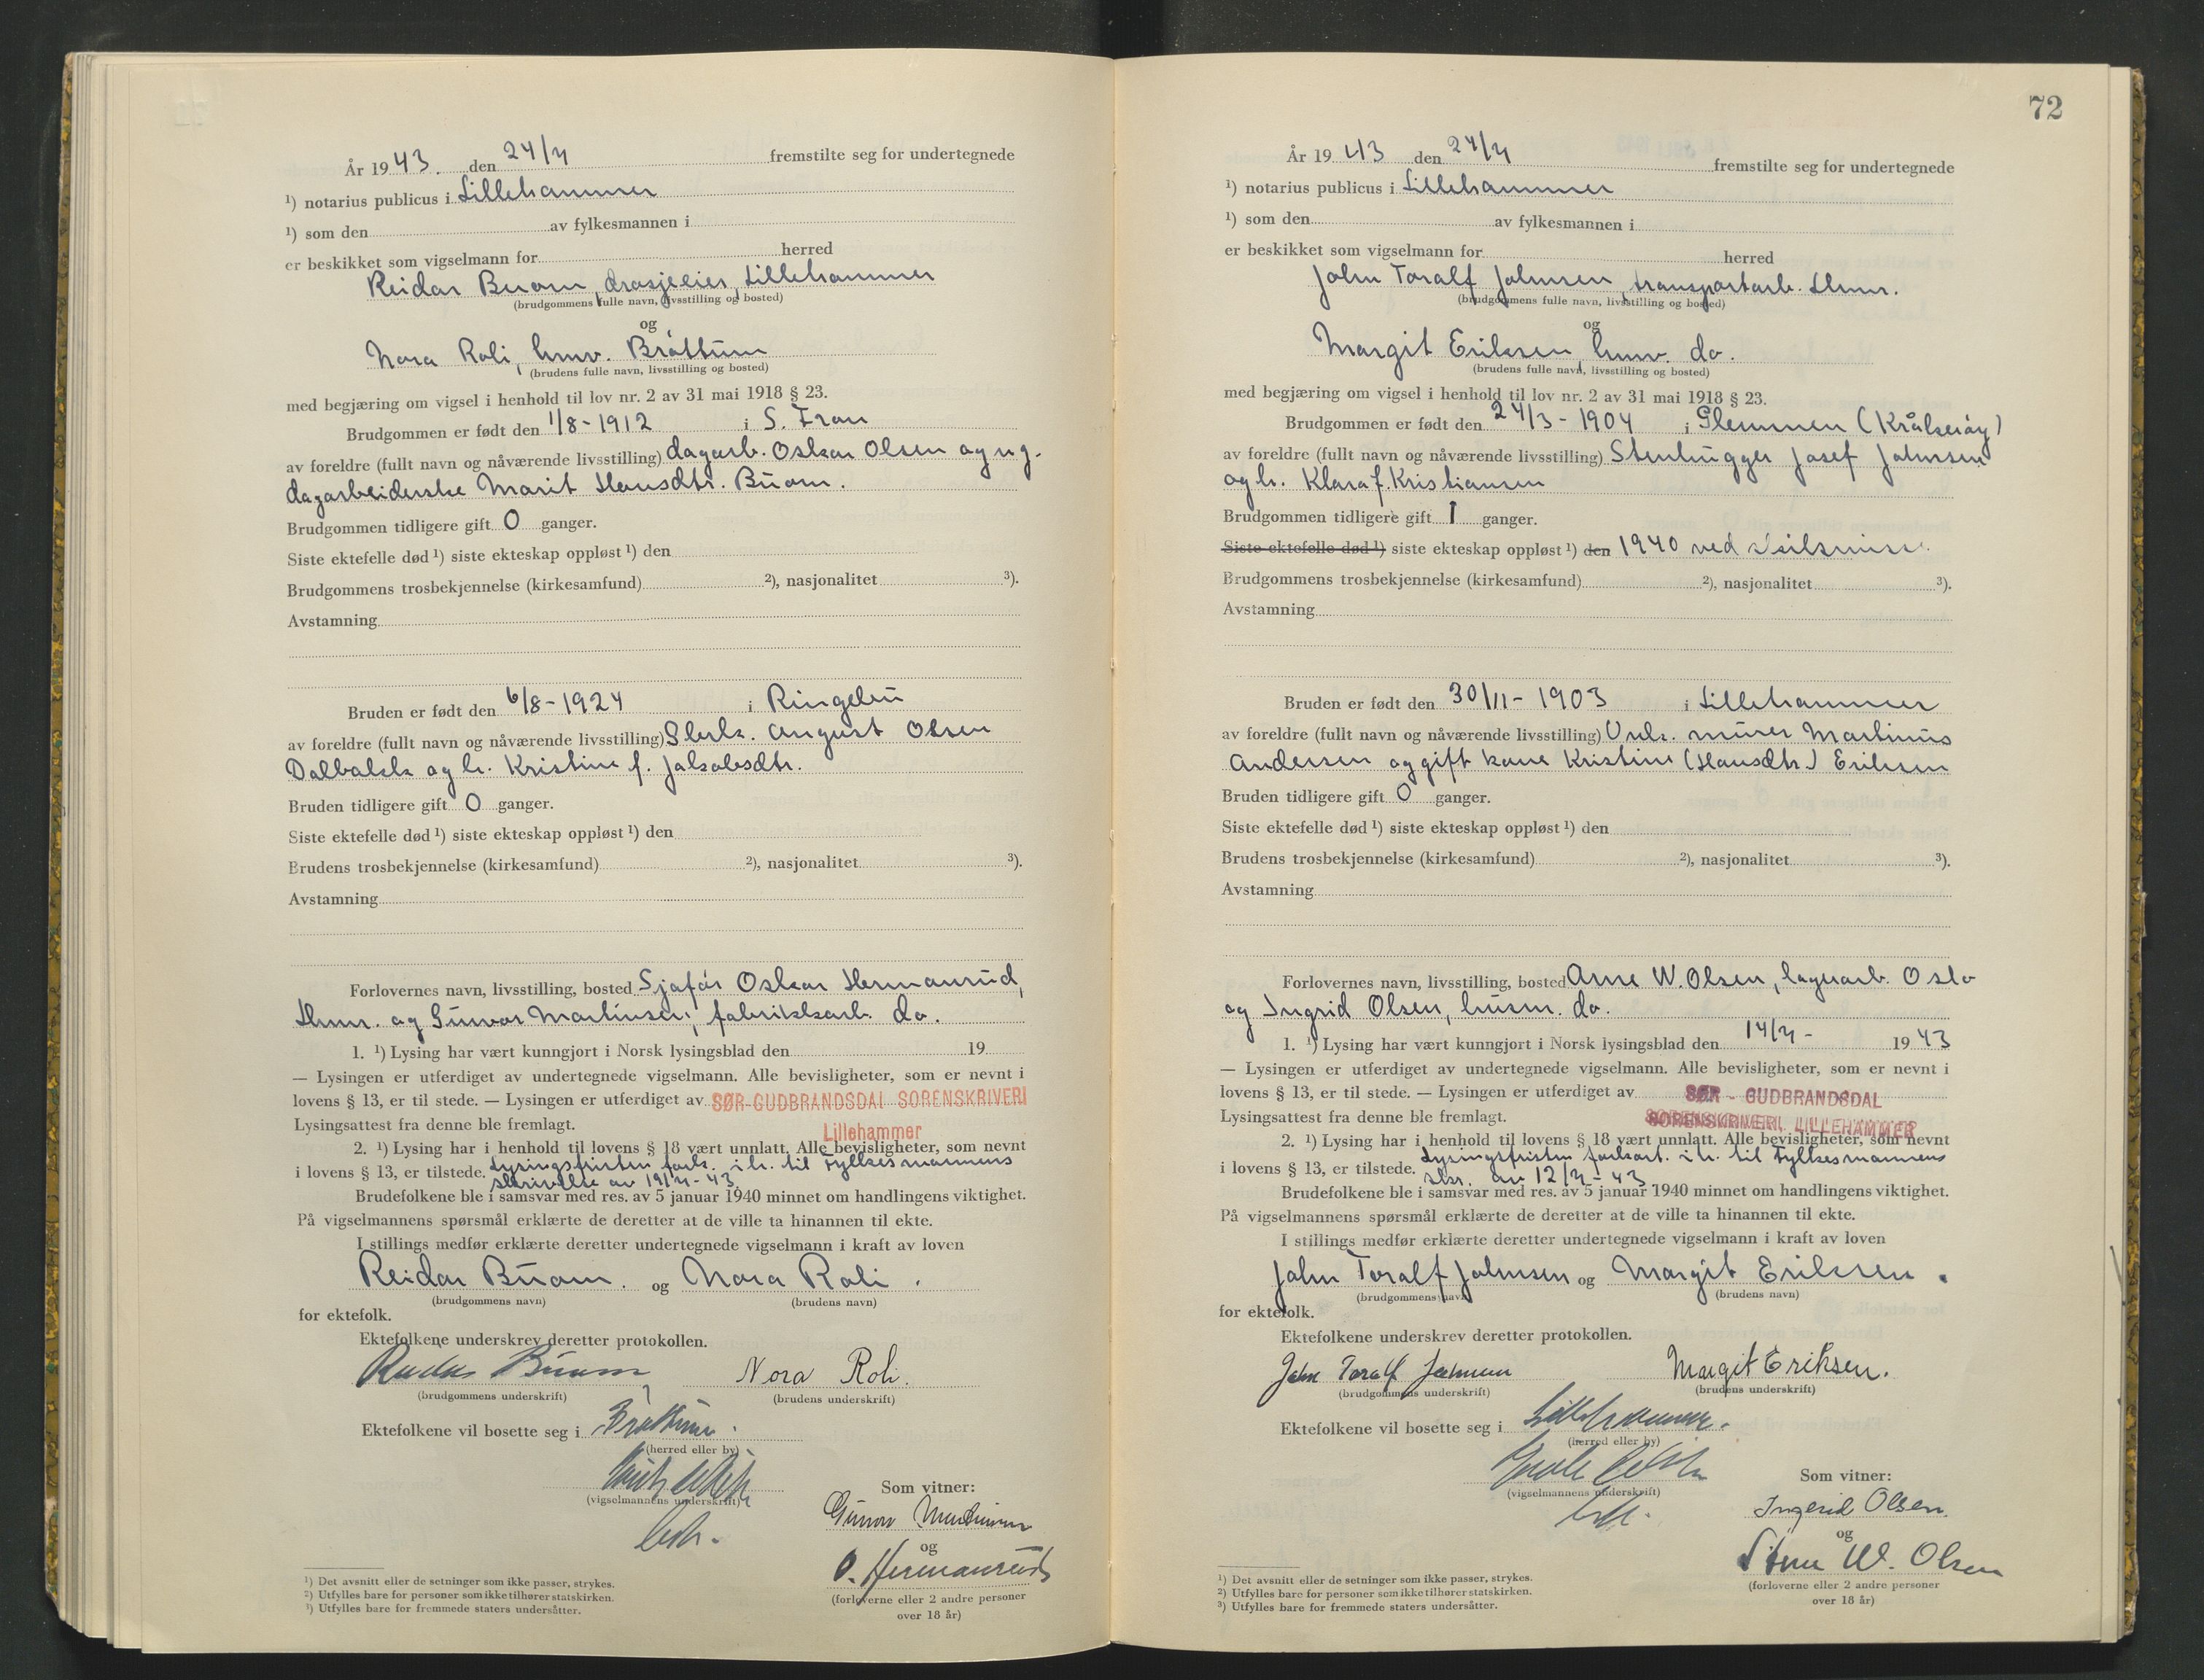 År 1943. den 24/4 fremstilte seg for undertegnede
¹) notarius publicus i Lillehammer
¹) som den av fylkesmannen i
er beskikket som vigselmann for herred
Reidar Buom, drosjeeier, Lillehammer
(brudgommens fulle navn, livsstilling og bosted)
og
Nora Roli, hmv. Brøttum
(brudens fulle navn, livsstilling og bosted)
med begjæring om vigsel i henhold til lov nr. 2 av 31 mai 1918 § 23.
Brudgommen er født den 1/8-1912 i S. Fron
av foreldre (fullt navn og nåværende livsstilling) dagarb. Oskar Olsen og ug.
dagarbeiderske Marit Hansdtr. Buom.
Brudgommen tidligere gift 0 ganger.
Siste ektefelle død ¹) siste ekteskap oppløst ¹) den
Brudgommens trosbekjennelse (kirkesamfund) ²), nasjonalitet ³).
Avstamning
Bruden er født den 6/8-1924 i Ringebu
av foreldre (fullt navn og nåværende livsstilling) August Olsen
Dalbakk og h. Kristine f. Jakobsdtr.
Bruden tidligere gift 0 ganger.
Siste ektefelle død ¹) siste ekteskap oppløst ¹) den
Brudens trosbekjennelse (kirkesamfund) ²), nasjonalitet ³).
Avstamning
Forlovernes navn, livsstilling, bosted Sjåfør Oskar Hermanrud,
Lhmr. og Gunvor Martinsen, fabrikkarb. do.
1. ¹) Lysing har vært kunngjort i Norsk lysingsblad den 19
— Lysingen er utferdiget av undertegnede vigselmann. Alle bevisligheter, som er nevnt i
lovens § 13, er til stede. — Lysingen er utferdiget av SØR-GUDBRANDSDAL SORENSKRIVERI
Lysingsattest fra denne ble fremlagt. Lillehammer
2. ¹) Lysing har i henhold til lovens § 18 vært unnlatt. Alle bevisligheter, som nevnt
i lovens § 13, er tilstede. Lysingsfristen fork. i h. til Fylkesmannens
skrivelse av 19/4-43.
Brudefolkene ble i samsvar med res. av 5 januar 1940 minnet om handlingens viktighet.
På vigselmannens spørsmål erklærte de deretter at de ville ta hinannen til ekte.
I stillings medfør erklærte deretter undertegnede vigselmann i kraft av loven
Reidar Buom. og Nora Roli.
(brudgommens navn) (brudens navn)
for ektefolk.
Ektefolkene underskrev deretter protokollen.
Reidar Buom Nora Roli.
(brudgommens underskrift) (brudens underskrift)
Ektefolkene vil bosette seg i Brøttum.
(herred eller by)
(vigselmannens underskrift)
Som vitner:
Gunvor Martinsen
og
O. Hermanrud
(forloverne eller 2 andre personer
over 18 år)
¹) Det avsnitt eller de setninger som ikke passer, strykes.
²) Utfylles bare for personer som ikke tilhører statskirken.
³) Utfylles bare for fremmede staters undersåtter.
72
År 1943 den 24/4 fremstilte seg for undertegnede
¹) notarius publicus i Lillehammer
¹) som den av fylkesmannen i
er beskikket som vigselmann for herred
John Toralf Johnsen, transportarb. Lhmr.
(brudgommens fulle navn, livsstilling og bosted)
og
Margit Eriksen, hmv. do.
(brudens fulle navn, livsstilling og bosted)
med begjæring om vigsel i henhold til lov nr. 2 av 31 mai 1918 § 23.
Brudgommen er født den 24/3-1904 i Glemmen (Kråkerøy)
av foreldre (fullt navn og nåværende livsstilling) Stenhugger Josef Johnsen
og h. Klara f. Kristiansen
Brudgommen tidligere gift 1 ganger.
Siste ektefelle død ¹) siste ekteskap oppløst ¹) den 1940 ved skilsmisse.
Brudgommens trosbekjennelse (kirkesamfund) ²), nasjonalitet ³).
Avstamning
Bruden er født den 30/11-1903 i Lillehammer
av foreldre (fullt navn og nåværende livsstilling) Unk. murer Martinius
Andersen og gift kone Kristine (Hansdtr.) Eriksen
Bruden tidligere gift 0 ganger.
Siste ektefelle død ¹) siste ekteskap oppløst ¹) den
Brudens trosbekjennelse (kirkesamfund) ²), nasjonalitet ³).
Avstamning
Forlovernes navn, livsstilling, bosted Arne W. Olsen, lagerarb. Oslo
og Ingrid Olsen, husm. do.
1. ¹) Lysing har vært kunngjort i Norsk lysingsblad den 14/4- 1943
— Lysingen er utferdiget av undertegnede vigselmann. Alle bevisligheter, som er nevnt i
lovens § 13, er til stede. — Lysingen er utferdiget av SØR - GUDBRANDSDAL
Lysingsattest fra denne ble fremlagt. SORENSKRIVERI, LILLEHAMMER
2. ¹) Lysing har i henhold til lovens § 18 vært unnlatt. Alle bevisligheter, som nevnt
i lovens § 13, er tilstede. Lysingsfristen forkort. i h. til Fylkesmannens
skr. av 12/4-43
Brudefolkene ble i samsvar med res. av 5 januar 1940 minnet om handlingens viktighet.
På vigselmannens spørsmål erklærte de deretter at de ville ta hinannen til ekte.
I stillings medfør erklærte deretter undertegnede vigselmann i kraft av loven
John Toralf Johnsen og Margit Eriksen.
(brudgommens navn) (brudens navn)
for ektefolk.
Ektefolkene underskrev deretter protokollen.
John Toralf Johnsen Margit Eriksen.
(brudgommens underskrift) (brudens underskrift)
Ektefolkene vil bosette seg i Lillehammer.
(herred eller by)
(vigselmannens underskrift)
Som vitner:
Ingerid Olsen.
og
Arne W. Olsen
(forloverne eller 2 andre personer
over 18 år)
¹) Det avsnitt eller de setninger som ikke passer, strykes.
²) Utfylles bare for personer som ikke tilhører statskirken.
³) Utfylles bare for fremmede staters undersåtter.